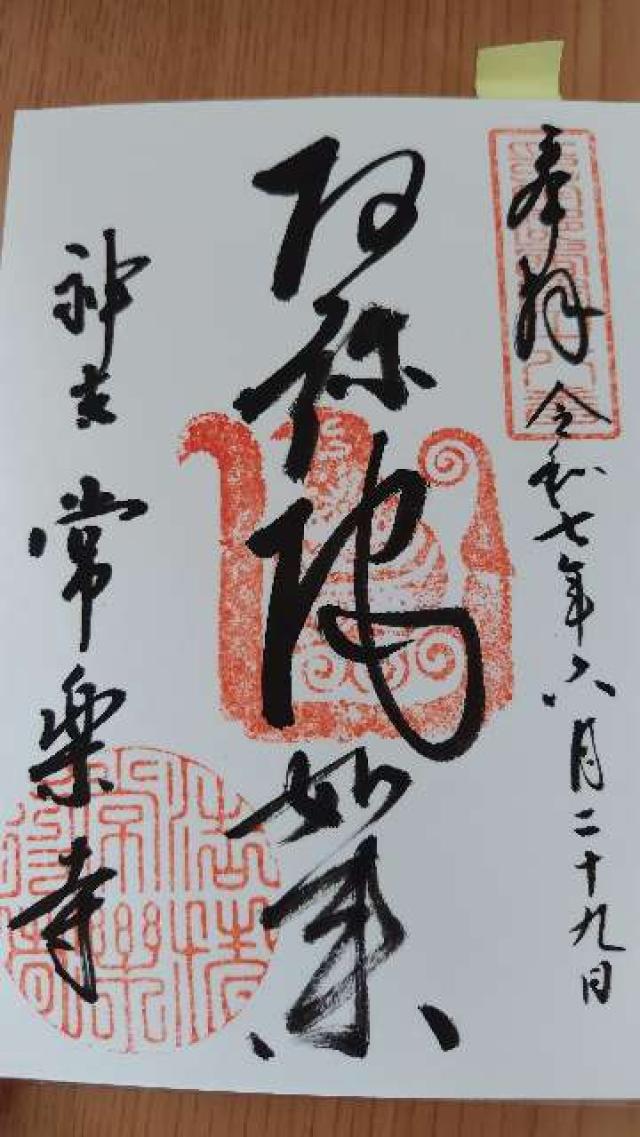 奉拝
令和七年六月二十九日
阿弥陀如来
神吉 常楽寺